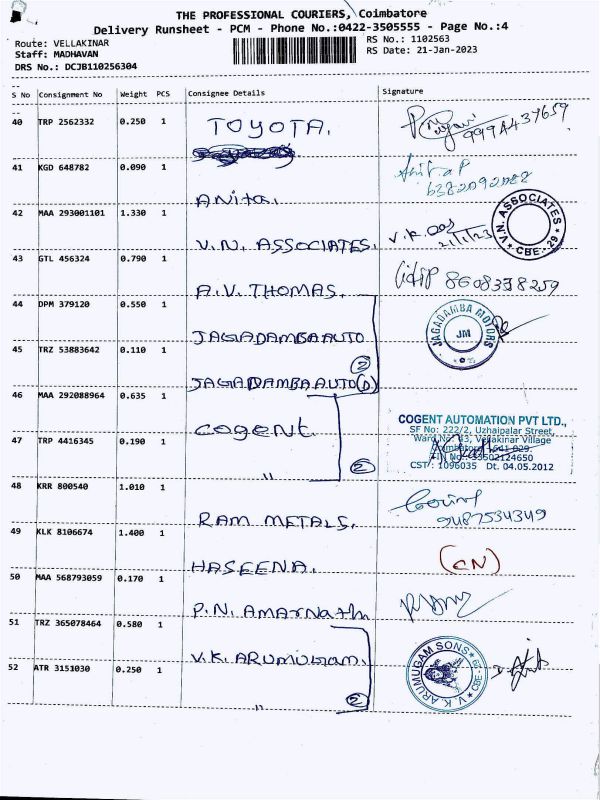 THE PROFESSIONAL COURIERS, Coimbatore
Delivery Runsheet - PCM - Phone No.:0422-3505555 - Page No.:4
Route: VELLAKINAR
RS No.: 1102563
Staff: MADHAVAN
RS Date: 21-Jan-2023
DRS No.: DCJB110256304
S No Consignment No Weight PCS Consignee Details Signature
40 TRP 2562332 0.250 1 TOYOTA.
41 KGD 648782 0.090 1 Anita.
42 MAA 293001101 1.330 1 V.N. ASSOCIATES. V.K. 21/1/23 V.N. ASSOCIATES ★ CBE-29 ★
43 GTL 456324 0.790 1 A.V. THOMAS. 8608378259
44 DPM 379120 0.550 1 JAGADAMBA AUTO JAGADAMBA MOTORS JM
45 TRZ 53883642 0.110 1 JAGADAMBA AUTO (D) 2
46 MAA 292088964 0.635 1 Cogent
COGENT AUTOMATION PVT LTD.,
SF No: 222/2, Uzhaipalar Street,
Ward No: 43, Vellakinar Village
Coimbatore - 641 029.
TIN No.: 33502124650
CST/: 1096035 Dt. 04.05.2012
47 TRP 4416345 0.190 1 " 2
48 KRR 800540 1.010 1 RAM METALS. 9487534349
49 KLK 8106674 1.400 1 HASEENA. (CN)
50 MAA 568793059 0.170 1 P.N. Amarnath
51 TRZ 365078464 0.580 1 V.K. ARUMUGAM. V.K. ARUMUGAM SONS
52 ATR 3151030 0.250 1 " 2